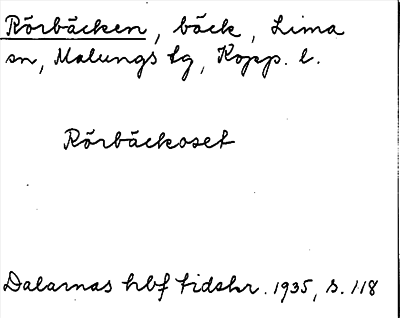 Rörbäcken, bäck, Lima
sn, Malungs tg, Kopp. l.
Rörbäckoset
Dalarnas hbf tidskr. 1935, s. 118